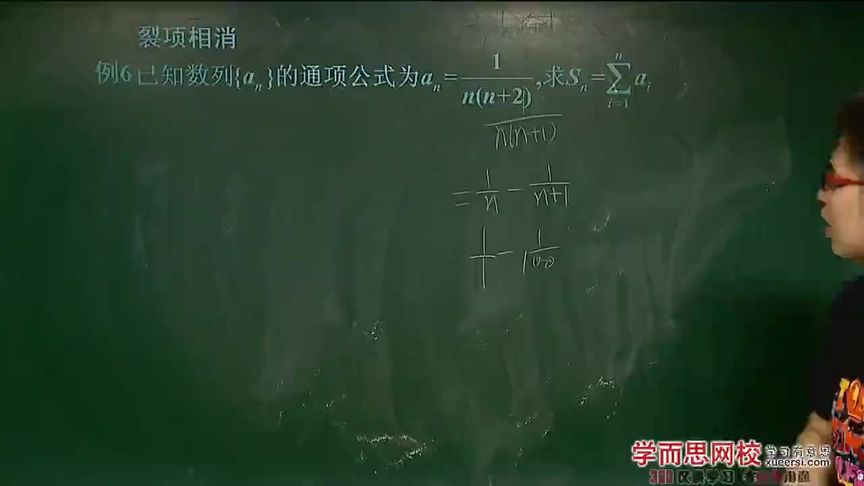 裂项相消
例6 已知数列{aₙ}的通项公式为aₙ=1/n(n+2),求Sₙ=∑ⁿᵢ₌₁aᵢ
1/n(n+1)
=1/n-1/n+1
1/1-1/100
学而思网校 学习有意思
xueersi.com